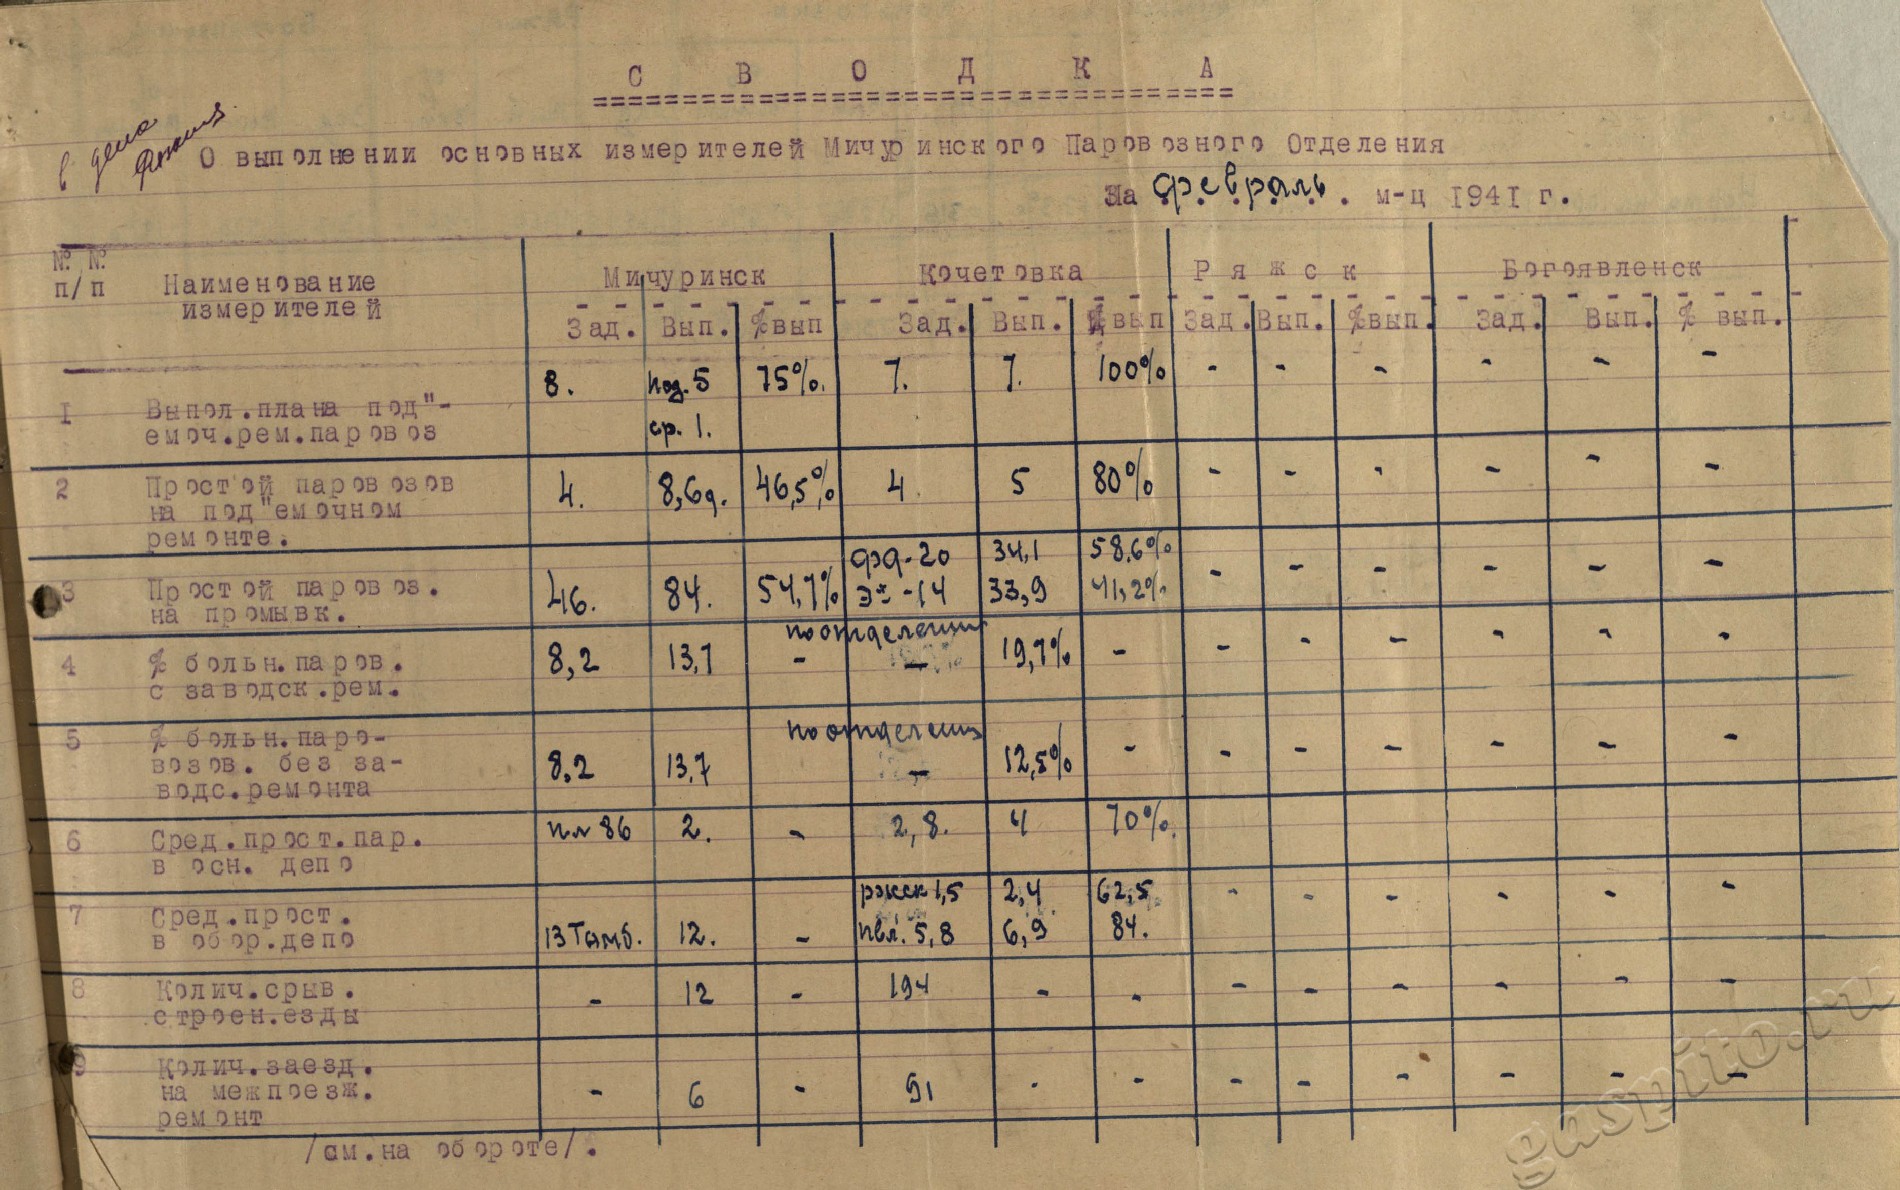 С В О Д К А
в дело
О выполнении основных измерителей Мичуринского Паровозного Отделения
На февраль. м-ц 1941 г.
№ №
п/п
Наименование
измерителей
Мичуринск Кочетовка Ряжск Богоявленск
Зад. Вып. %вып Зад. Вып. %вып Зад. Вып. %вып. Зад. Вып. % вып.
8. под. 5 75%. 7. 7. 100% - - - - - -
1 Выпол.плана под"-
емоч.рем.паровоз
ср. 1.
2 Простой паровозов
на под"емочном
ремонте.
4. 8,6д. 46,5% 4 5 80% - - - - - -
фд-20 34,1 58,6%
3 Простой паровоз.
на промывк.
46. 84. 54,7% -14 33,9 41,2% - - - - - -
по отделению
4 % больн.паров.
с заводск.рем.
8,2 13,7 - - 19,7% - - - - - - -
по отделению
5 % больн.паро-
возов. без за-
водс.ремонта
8,2 13,7 - 12,5% - - - - - - -
6 Сред.прост.пар.
в осн. депо
86 2. - 2,8. 4 70%.
7 Сред.прост.
в обор.депо
ржск 1,5 2,4 62,5 - - - - - -
13 Тамб. 12. - пвл. 5,8 6,9 84.
8 Колич.срыв.
строен.езды
- 12 - 194 - - - - - - - -
9 Колич.заезд.
на межпоезж.
ремонт
- 6 - 91 - - - - - - - -
/см.на обороте/.
gaspito.ru